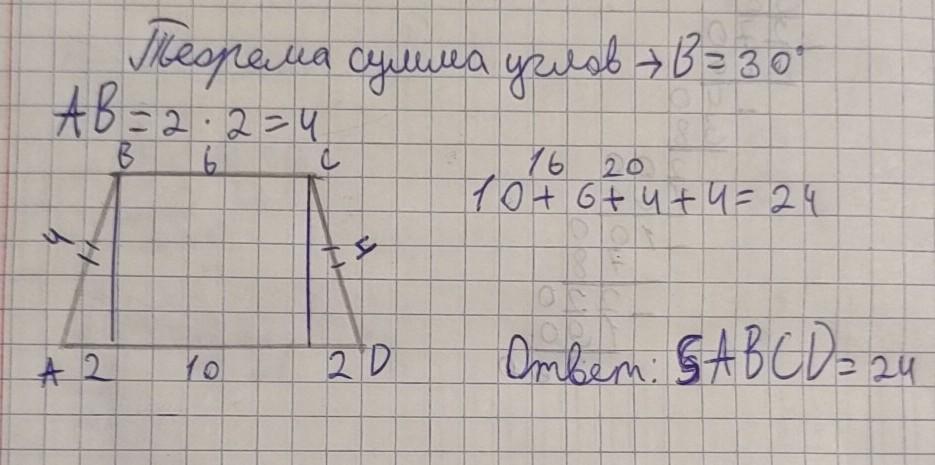 Теорема сумма углов → B = 30°
AB = 2 · 2 = 4
B 6 C
16 20
10 + 6 + 4 + 4 = 24
4 4
A 2 10 2 D
Ответ: SABCD = 24